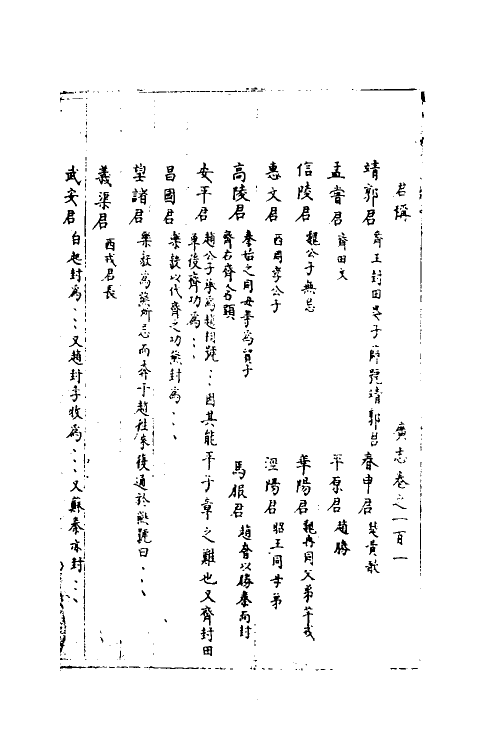 君稱 廣志卷之一百一
靖郭君 齊王封田嬰于薛號靖郭君 春申君 楚黃歇
孟嘗君 齊田文 平原君 趙勝
信陵君 魏公子無忌 華陽君 魏冉同父弟羋戎
惠文君 西周 公子 涇陽君 昭王同母弟
高陵君 秦 之同母弟為質子 齊 齊 顯 馬服君 趙奢以勝秦而封
安平君 趙公子 為趙相號、、因其能平子章之難也又齊封田單復齊功為、、
昌國君 樂毅以伐齊之功燕封為、、、
望諸君 樂毅為燕所忌而奔于趙 後通於燕號曰、、、
義渠君 西戎君長
武安君 白起封為、、、又趙封李牧為、、、又蘇秦亦封、、、